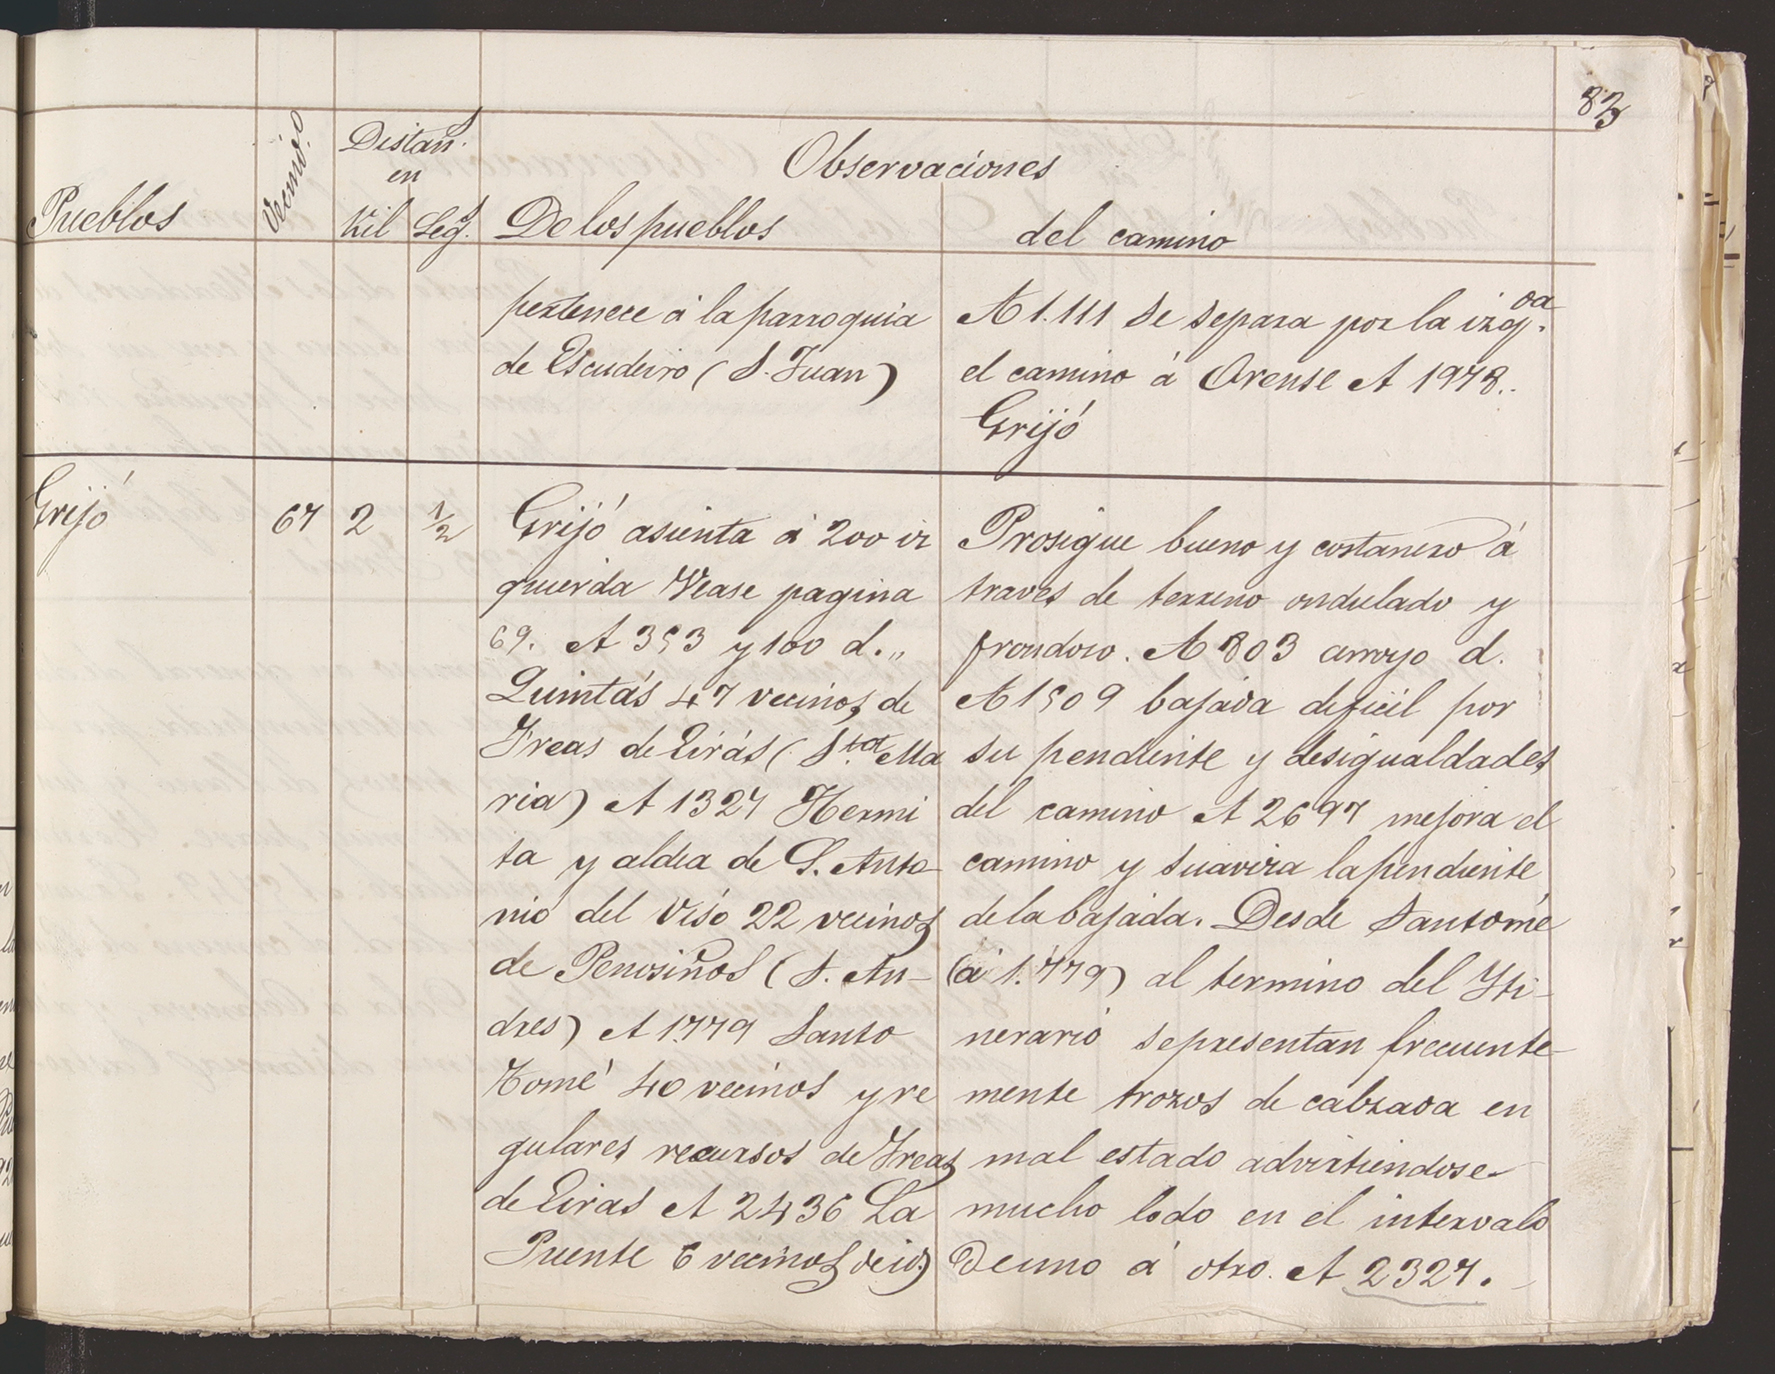 83
Distan.s
en
Observaciones
Pueblos
Vecind.o
Kil
Leg.s
De los pueblos
del camino
pertenece á la parroquia
de Escudeiro (S. Juan)
A 1.111 se separa por la izq.da
el camino á Orense A 1978.
Grijó
Grijó
67
2
1/2
Grijó asienta á 200 iz
quierda Vease pagina
69. A 353 y 100 d.,,
Quintás 47 vecinos de
Freas de Eirás (S.ta Ma
ria) A 1327 Hermi
ta y aldea de S. Anto
nio del Viso 22 vecinos
de Penosiños (S. An-
dres) A 1779 Santo
Tomé 40 vecinos y re
gulares recursos de Freas
de Eiras A 2436 La
Puente 6 vecinos de id)
Prosigue bueno y costanero á
traves de terreno ondulado y
frondoso. A 803 arroyo d.
A 1509 bajada deficil por
su pendiente y desigualdades
del camino A 2697 mejora el
camino y suaviza la pendiente
de la bajada. Desde Santomé
(á 1.779) al termino del Yti-
nerario se presentan frecuente-
mente trozos de calzada en
mal estado advirtiendose
mucho lodo en el intervalo
de uno á otro. A 2327.